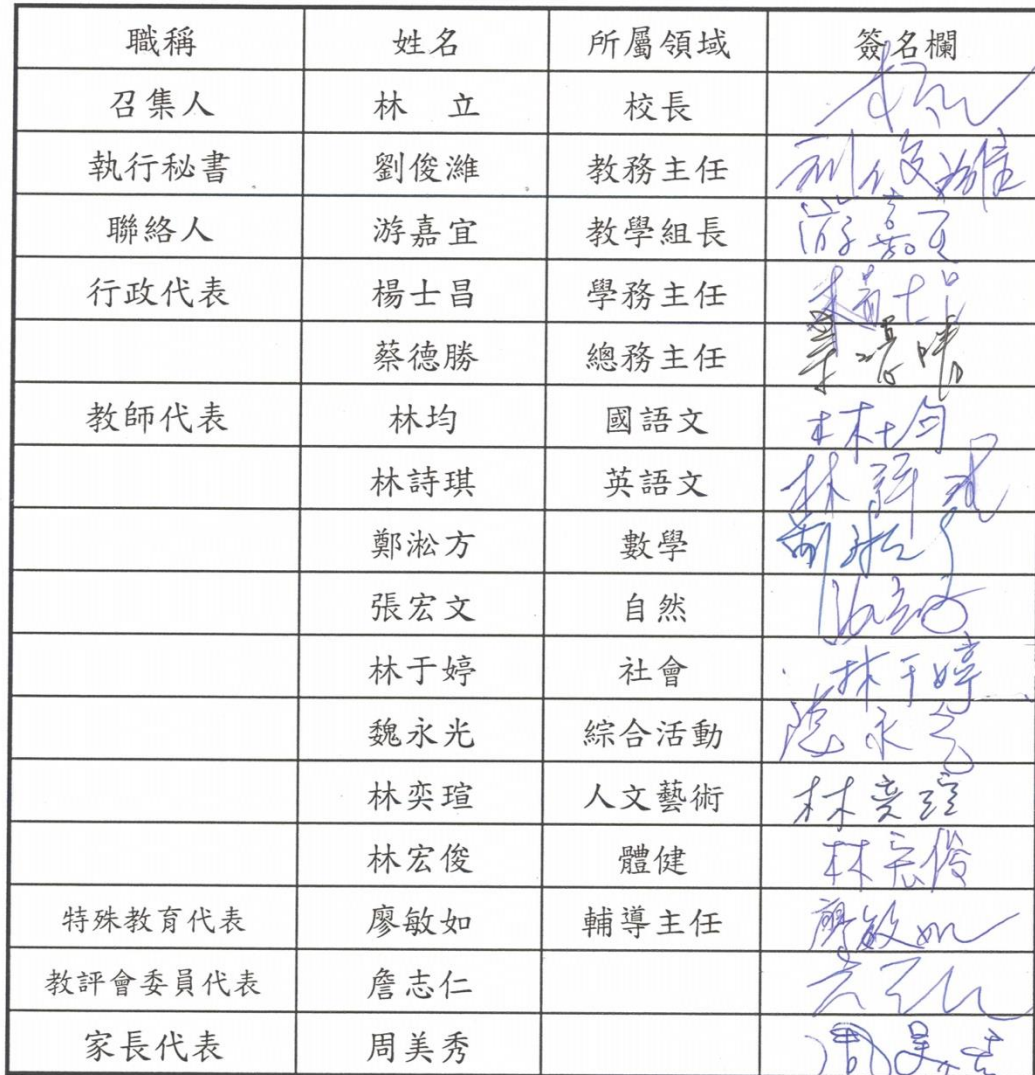 職稱 姓名 所屬領域 簽名欄
召集人 林 立 校長
執行秘書 劉俊濰 教務主任 刘俊濰
聯絡人 游嘉宜 教學組長 游嘉宜
行政代表 楊士昌 學務主任 楊士昌
蔡德勝 總務主任
教師代表 林均 國語文 林均
林詩琪 英語文 林詩琪
鄭淞方 數學
張宏文 自然
林于婷 社會 林于婷
魏永光 綜合活動 魏永光
林奕瑄 人文藝術 林奕瑄
林宏俊 體健 林宏俊
特殊教育代表 廖敏如 輔導主任 廖敏如
教評會委員代表 詹志仁
家長代表 周美秀 周美秀